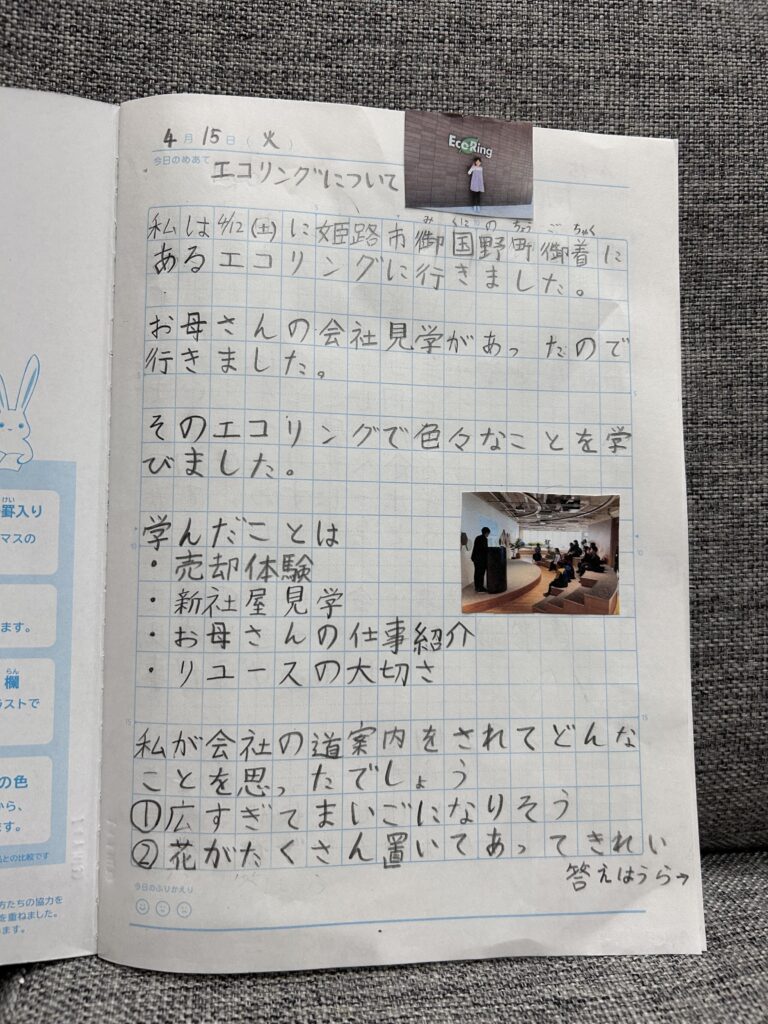 4月15日(火)
今日のめあて
エコリングについて
EcoRing
みくにのちょうごちゃく
私は4/12(土)に姫路市御国野町御着に
あるエコリングに行きました。
お母さんの会社見学があったので
行きました。
そのエコリングで色々なことを学
びました。
学んだことは
・売却体験
・新社屋見学
・お母さんの仕事紹介
・リユースの大切さ
私が会社の道案内をされてどんな
ことを思ったでしょう
①広すぎてまいごになりそう
②花がたくさん置いてあってきれい
答えはうら→
今日のふりかえり
けい
罫入り
マスの
ます。
らん
欄
ラストで
の色
から、
ます。
品との比較です
方たちの協力を
を重ねました。
います。
5
10
15
5
10
15